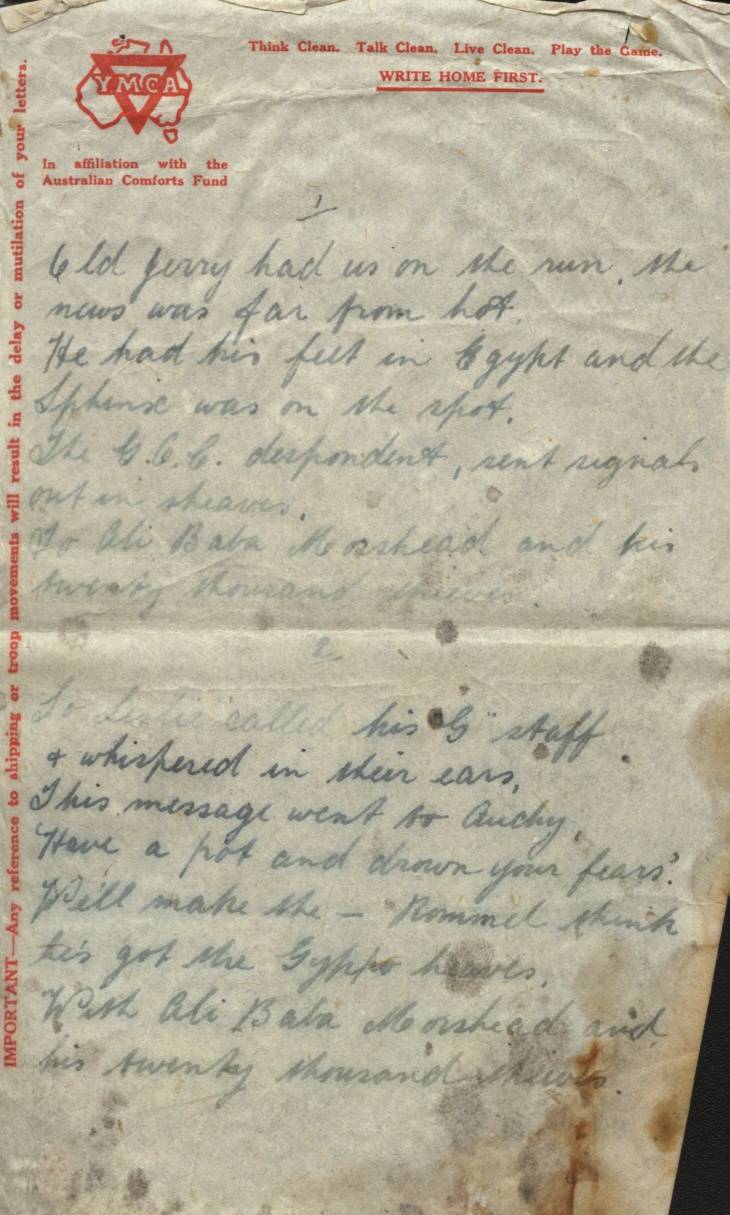 Think Clean. Talk Clean. Live Clean. Play the Game.
WRITE HOME FIRST.
YMCA
In affiliation with the
Australian Comforts Fund
IMPORTANT—Any reference to shipping or troop movements will result in the delay or mutilation of your letters.
1
Old Jerry had us on the run, the
news was far from hot.
He had his feet in Egypt and the
Sphinx was on the spot.
The G.O.C. despondent, sent signals
out in sheaves.
To Ali Baba Morshead and his
twenty thousand thieves.
2
So Leslie called his "G" staff
& whispered in their ears,
This message went to Auchy,
Have a pot and drown your fears".
We'll make the — Rommel think
he's got the Gyppo heaves,
With Ali Baba Morshead and
his twenty thousand thieves.